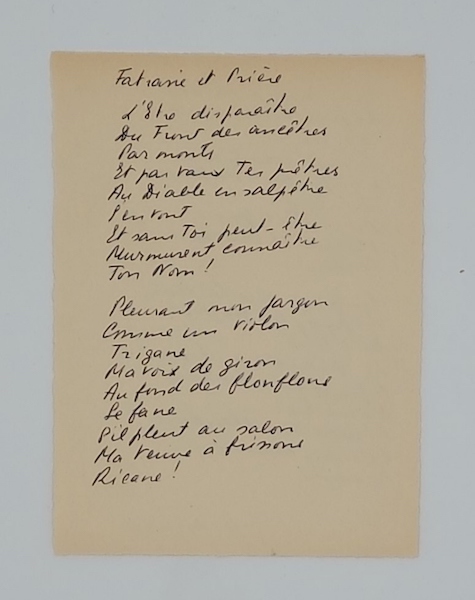 Fatrasie et Prière
L'Etre disparaître
Du Front des ancêtres
Par monts
Et par vaux Tes prêtres
Au Diable en salpêtre
S'en vont
Et sans Toi peut-être
Murmurent connaître
Ton Nom !
Pleurant mon jargon
Comme un violon
Tzigane
Ma voix de giron
Au fond des flonflons
Se fane
S'il pleut au salon
Ma veuve à frissons
Ricane !